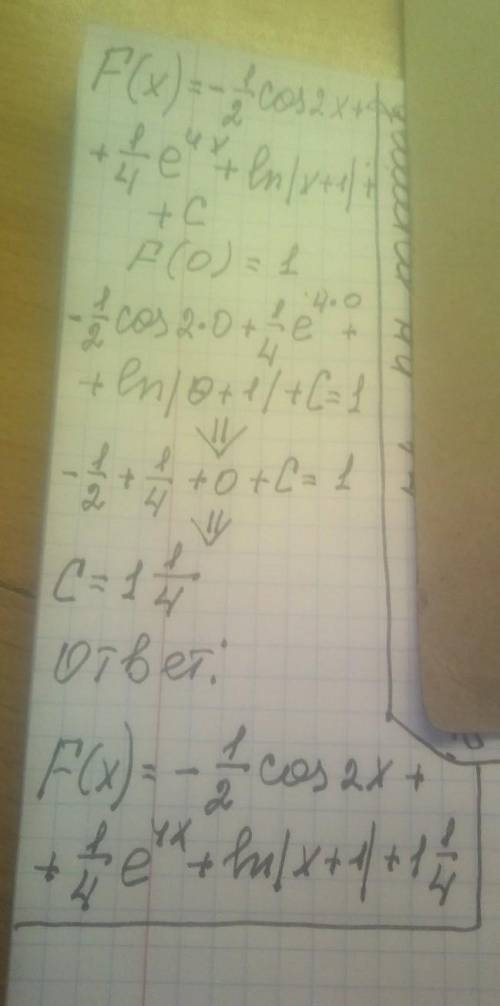 F(x) = -1/2 cos2x +
+ 1/4 e^4x + ln|x+1| +
+ C
F(0) = 1
-1/2 cos 2·0 + 1/4 e^4·0 +
+ ln|0+1| + C = 1
⇓
-1/2 + 1/4 + 0 + C = 1
⇓
C = 1 1/4
Ответ:
F(x) = -1/2 cos 2x +
+ 1/4 e^4x + ln|x+1| + 1 1/4